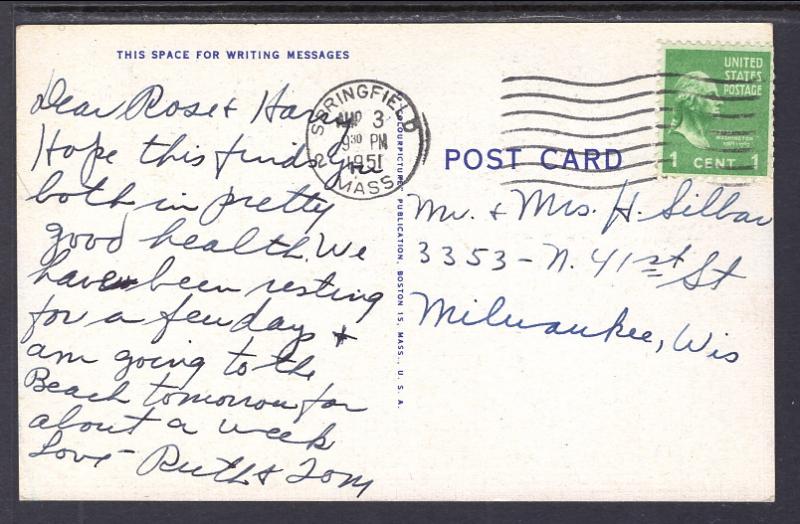 THIS SPACE FOR WRITING MESSAGES
Dear Rose & Harry
Hope this finds you
both in pretty
good health. We
have been resting
for a few days &
am going to the
Beach tomorrow for
about a week
Love - Ruth & Tom
SPRINGFIELD
3
9 30 PM
1951
MASS.
COLOURPICTURE PUBLICATION, BOSTON 15, MASS., U.S.A.
POST CARD
UNITED
STATES
POSTAGE
WASHINGTON
1 CENT 1
Mr. & Mrs. H. Silbar
3353 - N. 41st St
Milwaukee, Wis